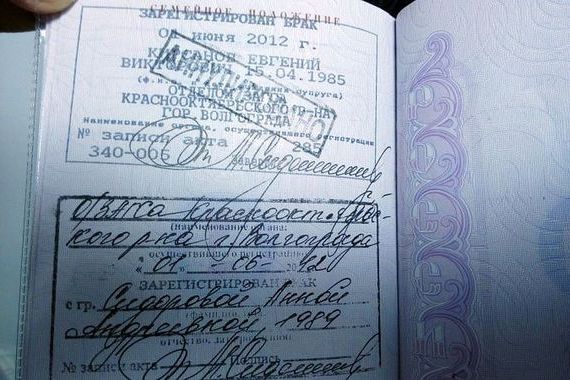 СЕМЕЙНОЕ ПОЛОЖЕНИЕ
ЗАРЕГИСТРИРОВАН БРАК
июня 2012 г.
ЕВГЕНИЙ
15.04.1985
супруга)
КРАСНООКТЯБРЬСКОГО Р-НА
ГОР. ВОЛГОГРАДА
Наименование органа, осуществившего регистрацию
№ записи акта 285
340-006
ОЗАГСа Краснооктябрьс-
кого р-на г. Волгограда
(наименование органа,
осуществившего регистрацию)
«01» 06
ЗАРЕГИСТРИРОВАН БРАК
с гр. Сидоровой Анной
Андреевной, 1989
отчество, дата рождения)
№ записи акта Подпись